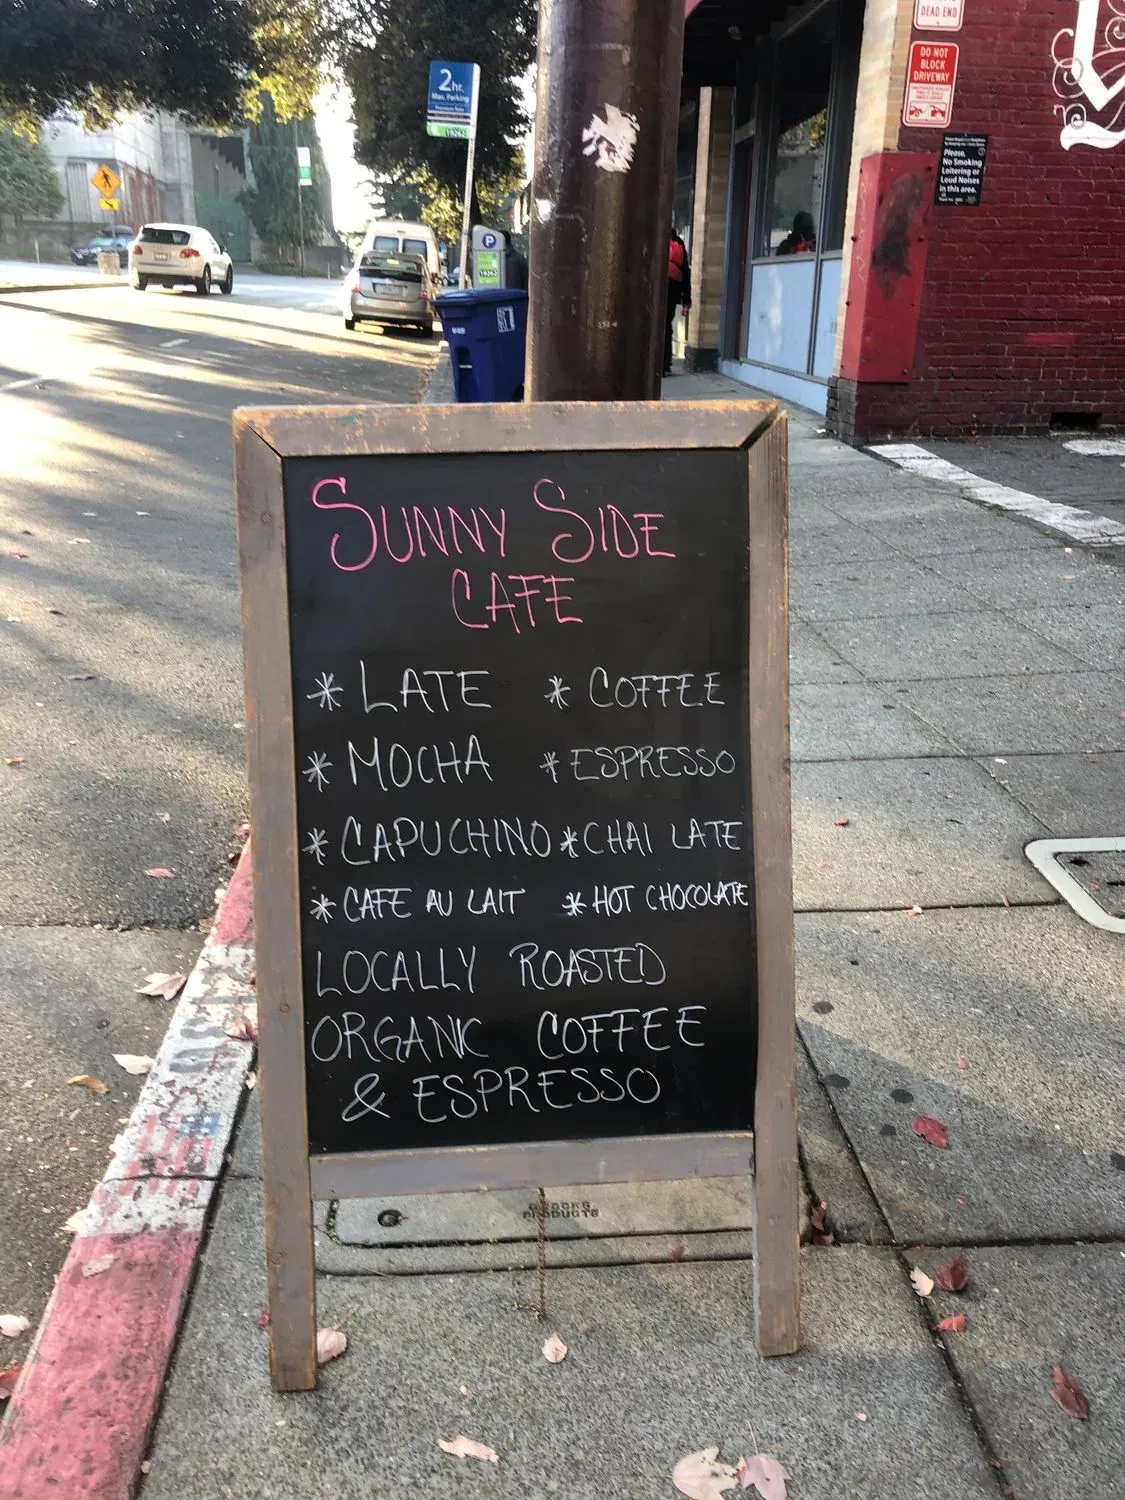 DEAD END
DO NOT
BLOCK
DRIVEWAY
2hr.
Max. Parking
19262
P
19262
Please,
No Smoking
Loitering or
Loud Noises
in this area.
SUNNY SIDE
CAFE
* LATE * COFFEE
* MOCHA * ESPRESSO
* CAPUCHINO * CHAI LATE
* CAFE AU LAIT * HOT CHOCOLATE
LOCALLY ROASTED
ORGANIC COFFEE
& ESPRESSO
BROOKS
PRODUCTS